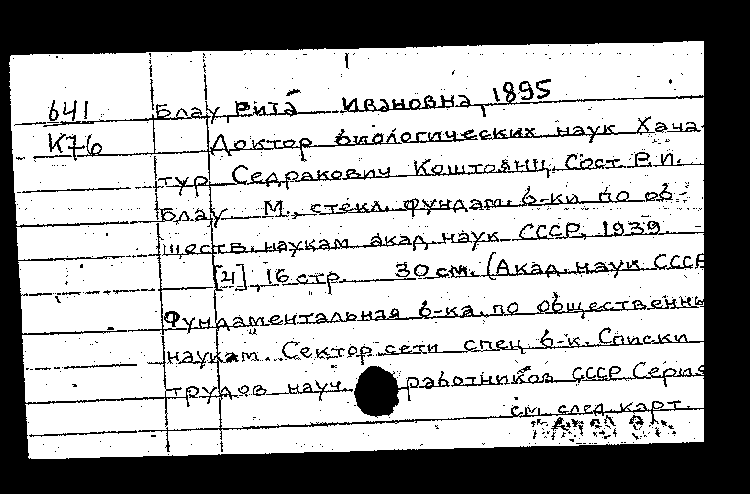 641 Блау, Рита Ивановна, 1895
К76 Доктор биологических наук Хача-
тур Седракович Коштоянц. Сост. Р. И.
Блау М., стекл. фундам. б-ки по об-
ществ. наукам акад. наук СССР, 1939.
[4], 16 стр. 30 см. (Акад. наук СССР
Фундаментальная б-ка. по общественны
наукам. Сектор сети спец б-к. Списки
трудов науч. работников СССР Серия
см. след. карт.